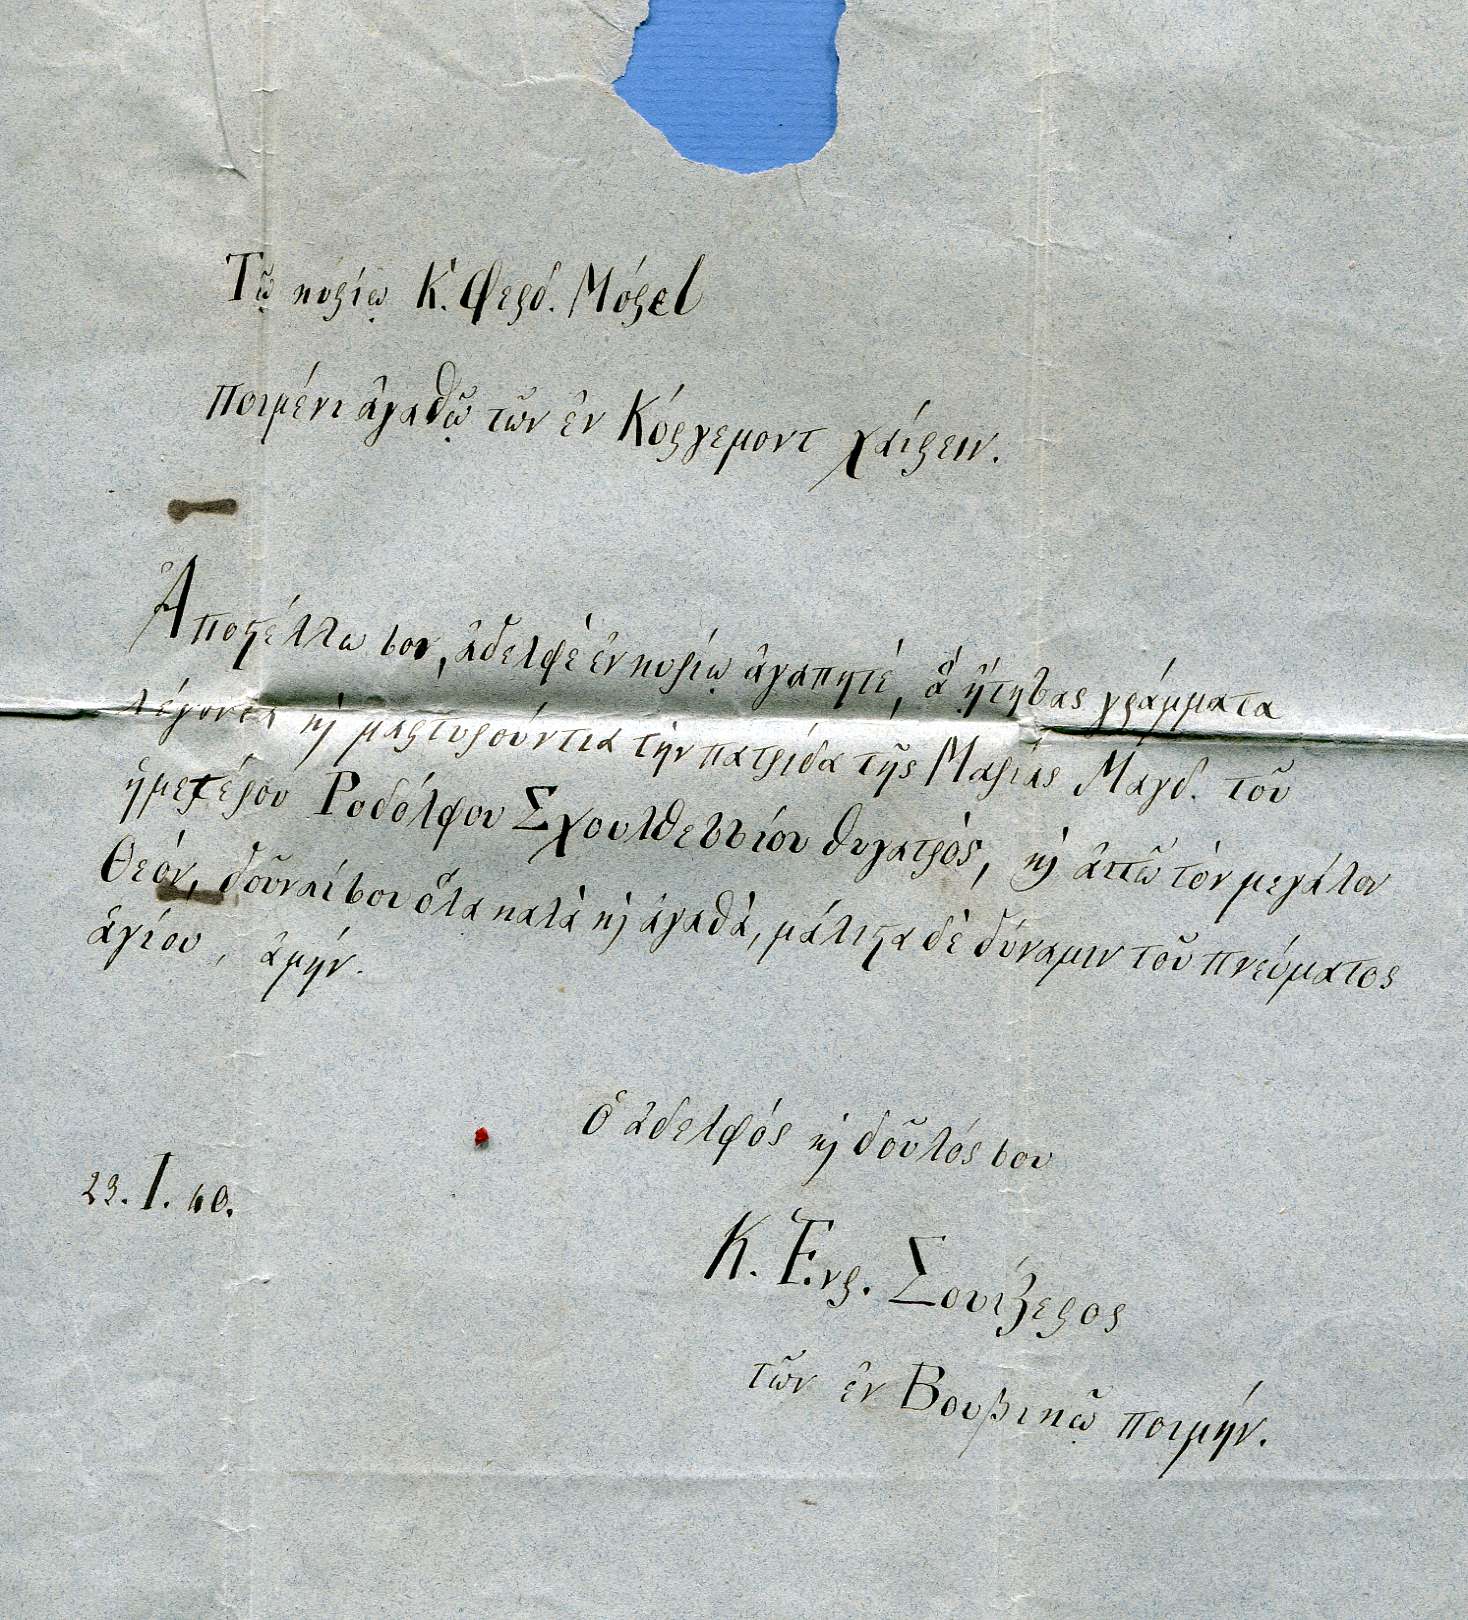 Τῷ κυρίῳ Κ. Φερδ. Μόρελ
ποιμένι ἀγαθῷ τῶν ἐν Κόργεμοντ χαίρειν.
Ἀποϛέλλω σοι, ἀδελφὲ ἐν κυρίῳ ἀγαπητέ, ἃ ᾔτησας γράμματα
λέγοντα κ̀ μαρτυροῦντα τὴν πατρίδα τῆς Μαρίας Μαγδ. τοῦ
ἡμετέρου Ῥοδόλφου Σχουλθεσσίου θυγατρός, κ̀ αἰτῶ τὸν μεγάλον
Θεόν, δοῦναί σοι ὅλα καλὰ κ̀ ἀγαθὰ, μάλιϛα δὲ δύναμιν τοῦ πνεύματος
ἁγίου, ἀμήν.
ὁ ἀδελφός κ̀ δοῦλός σου
23. I. 60.
Κ. Ἐνρ. Σουίζερος
τῶν ἐν Βουβικῷ ποιμήν.